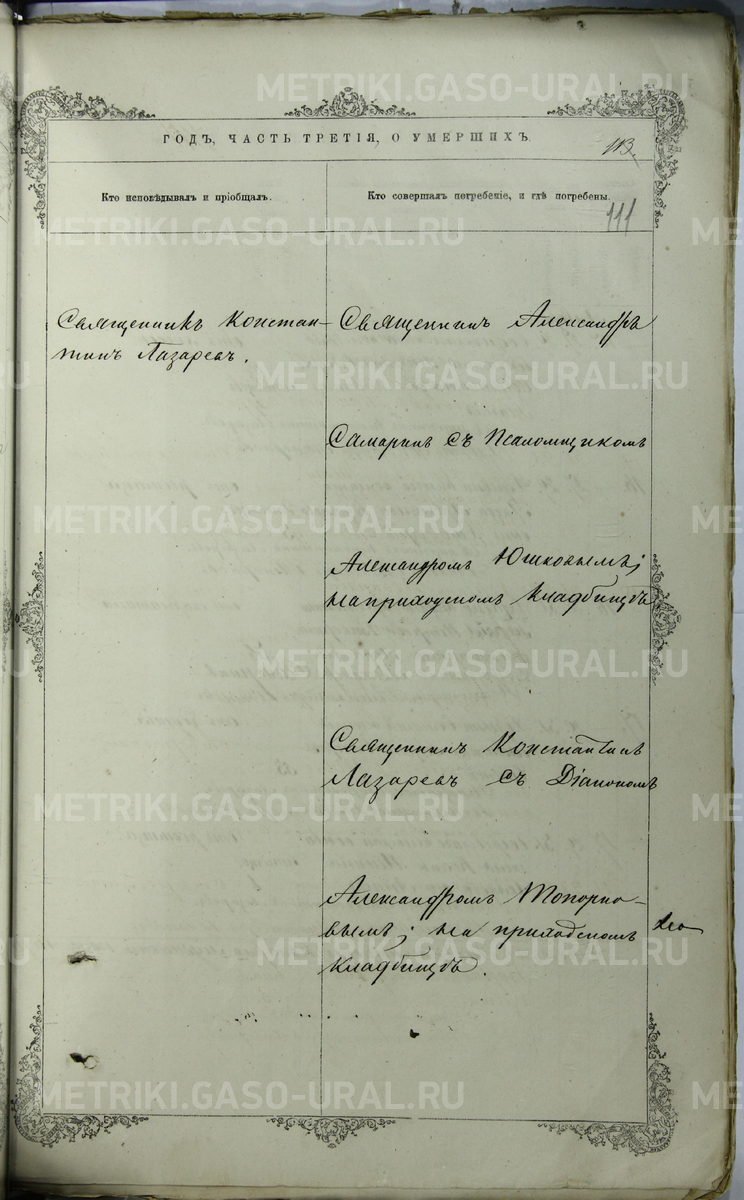 METRIKI.GASO-URAL.RU
ГОДЪ, ЧАСТЬ ТРЕТІЯ, О УМЕРШИХЪ.
113.
Кто исповѣдывалъ и пріобщалъ.
Кто совершалъ погребеніе, и гдѣ погребены.
111
METRIKI.GASO-URAL.RU
Священникъ Констан-
тинъ Лазаревъ.
Священникъ Александръ
METRIKI.GASO-URAL.RU
Самаринъ съ Псаломщикомъ
METRIKI.GASO-URAL.RU
Александромъ Юшковымъ;
на приходскомъ кладбищѣ
METRIKI.GASO-URAL.RU
Священникъ Константинъ
Лазаревъ съ Діакономъ
METRIKI.GASO-URAL.RU
Александромъ Топорко-
вымъ; на приходскомъ
кладбищѣ.
METRIKI.GASO-URAL.RU
METRIKI.GASO-URAL.RU